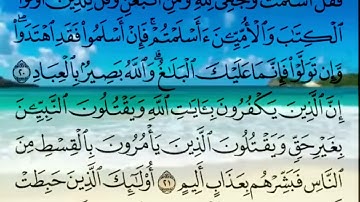 فَقُلْ أَسْلَمْتُ وَجْهِيَ لِلَّهِ وَمَنِ ٱتَّبَعَنِ وَقُل لِّلَّذِينَ أُوتُوا۟
ٱلْكِتَـٰبَ وَٱلْأُمِّيِّـۧنَ ءَأَسْلَمْتُمْ ۚ فَإِنْ أَسْلَمُوا۟ فَقَدِ ٱهْتَدَوا۟ ۖ
وَّإِن تَوَلَّوْا۟ فَإِنَّمَا عَلَيْكَ ٱلْبَلَـٰغُ ۗ وَٱللَّهُ بَصِيرٌۢ بِٱلْعِبَادِ ٢٠
إِنَّ ٱلَّذِينَ يَكْفُرُونَ بِـَٔايَـٰتِ ٱللَّهِ وَيَقْتُلُونَ ٱلنَّبِيِّـۧنَ
بِغَيْرِ حَقٍّ وَيَقْتُلُونَ ٱلَّذِينَ يَأْمُرُونَ بِٱلْقِسْطِ مِنَ
ٱلنَّاسِ فَبَشِّرْهُم بِعَذَابٍ أَلِيمٍ ٢١ أُو۟لَـٰٓئِكَ ٱلَّذِينَ حَبِطَتْ